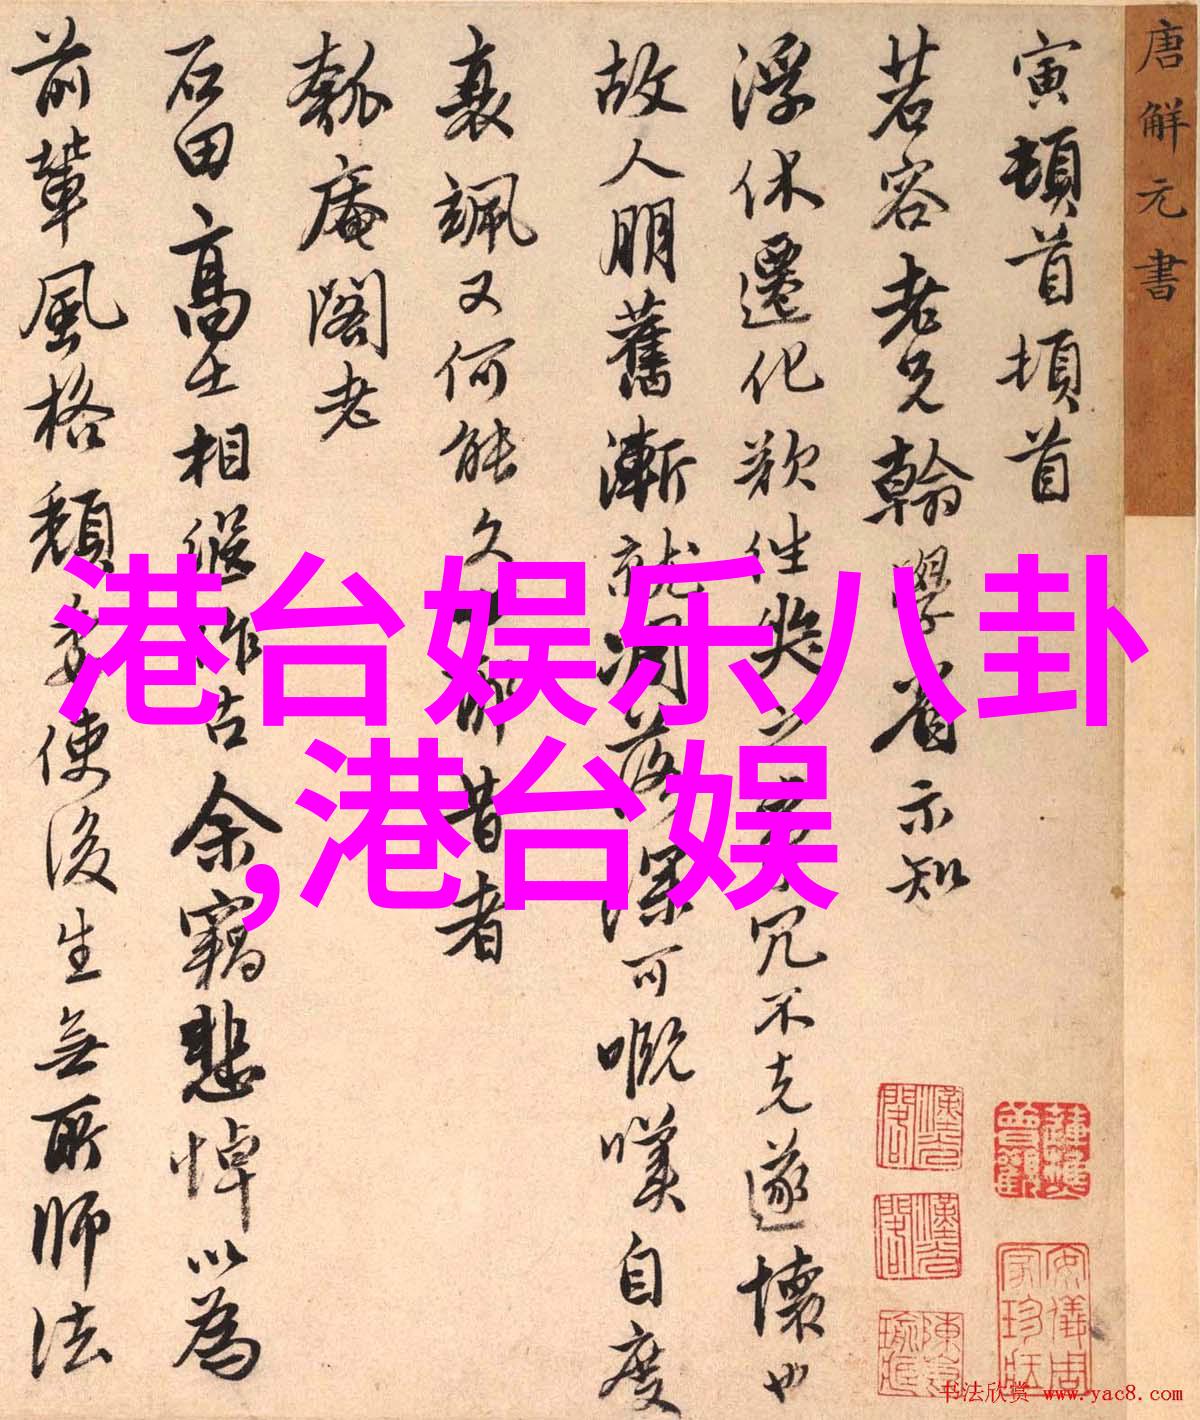 唐解元書
寅頓首頓首
茗容老兄翰學省示知
浮休遷化欲往
冗不克遂懷也
故人朋舊漸就凋落深可嘅嘆自度
衰颯又何能久
昔者
瓠庵閣老
石田高士相繼作古余竊悲悼以為
前輩風格頹
使後生無所師法
港台娱乐八卦
,港台娱
书法欣赏 www.yac8.com